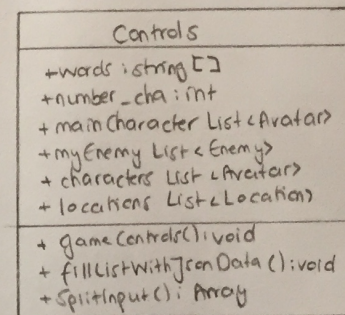 Controls
+words : string []
+number_cha : int
+ mainCharacter List <Avatar>
+myEnemy List <Enemy>
+ characters List <Avatar>
+ locations List <Location>
+ gameControls() : void
+ fillListWithJsonData () : void
+ SplitInput() : Array